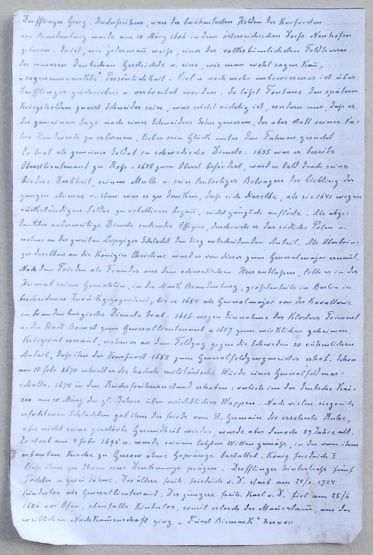 Derfflinger Georg, Reichsfreiherr, einer der berühmtesten Helden der Kurfürsten
von Brandenburg wurde am 10 März 1606 in dem österreichischen Dorfe Neuhofen
geboren. Er ist, wie jedermann weiss, einer der volkstümlichsten Feldherren
der neueren Deutschen Geschichte u. eine, wie man wohl sagen kann,
sagenumwobene Persönlichkeit. Viel u. noch mehr unbewiesenes ist über
Derfflinger geschrieben u. verbreitet worden. So lässt Fontane den spätern
Kriegshelden zuerst Schneider sein, was nicht richtig ist, sondern nur, dass er
der gemeinen Sage nach eines Schneiders Sohn gewesen, der aber statt seines Va-
ters Handwerk zu erlernen, lieber sein Glück unter den Fahnen gesucht.
Er trat als gemeiner Soldat in schwedische Dienste. 1635 war er bereits
Oberstlieutenant zu Ross. 1638 zum Oberst befördert, ward er bald durch seine
Biedere Derbheit, seinen Muth u. sein leutseliges Betragen der Liebling der
ganzen Armee u. ihm war es zu danken, dass sich dieselbe, als sie 1641 wegen
rückständigen Soldes zu rebellieren begann, nicht gänzlich auflöste. Als abge-
dankter auswärtige Dienste suchender Offizier, durchreiste er das südliche Polen u.
nahm an der zweiten Leipziger Schlacht den Sieg entscheidenden Anteil. Als Überbrin-
ger desselben an die Königin Christine ward er von dieser zum Generalmajor ernannt.
Nach dem Frieden als Fremder aus dem schwedischen Heer entlassen, lebte er in der
Heimat seiner Gemahlin, in der Mark Brandenburg, grösstenteils in Berlin in
bescheidener Zurückgezogenheit, bis er 1654 als Generalmajor von der Kavallerie
in brandenburgische Dienste trat. 1656 wegen Einnahme des Klosters Priment
u. der Stadt Bomst zum Generallieutenant u. 1657 zum wirklichen geheimen
Kriegsrat ernannt, nahm er an dem Feldzug gegen die Schweden so rühmlichen
Anteil, dass ihn der Kurfürst 1658 zum Generalfeldzeugmeister erhob. Schon
am 18 Febr 1670 erhielt er die höchste militärische Würde eines Generalfeldmar-
schalls. 1674 in den Reichsfreiherrnstand erhoben, verlieh ihm der Deutsche Kai-
ser am 10 März des gl. Jahres ein Wappen. Nach vielen siegreich
Schlachten gab ihm der Friede von St. Germain die ersehnte Ruhe,
Er starb am 4 Febr 1695 u. wurde seinem letzten Willen gemäss, in der von ihm
erbauten Kirche zu Gusow ohne Gepränge bestattet. König Friedrich I
liess ihm zu Ehren eine Denkmünze prägen. Derfflinger hinterliess fünf
Töchter u. zwei Söhne. Der ältere Freih. Friedrich v. D. starb am 29/1 1724
kinderlos als Generallieutenant. Der jüngere Freih. Karl v. D. fiel am 25/6
1686 vor Ofen, ebenfalls kinderlos, somit erlosch der Mannsstamm, aus der
weiblichen Nachkommenschaft ging "Fürst Bismark" hervor.